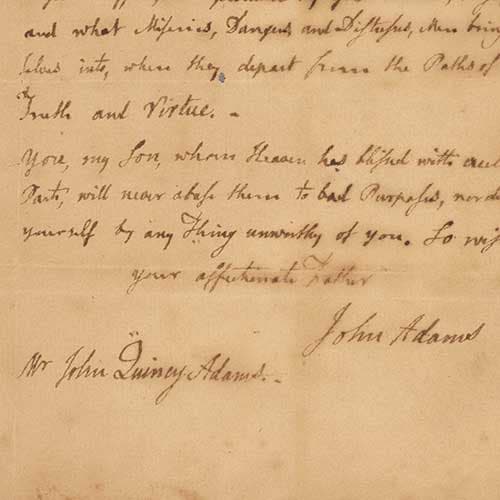 and what Miseries, Dangers and Distresses, Men bring
selves into, when they depart from the Paths of
Truth and Virtue. -
You, my Son, whom Heaven has blessed with excel
Parts, will never abuse them to bad Purposes, nor di
yourself by any Thing unworthy of you. So wis
your affectionate Father
John Adams
Mr John Quincy Adams. -